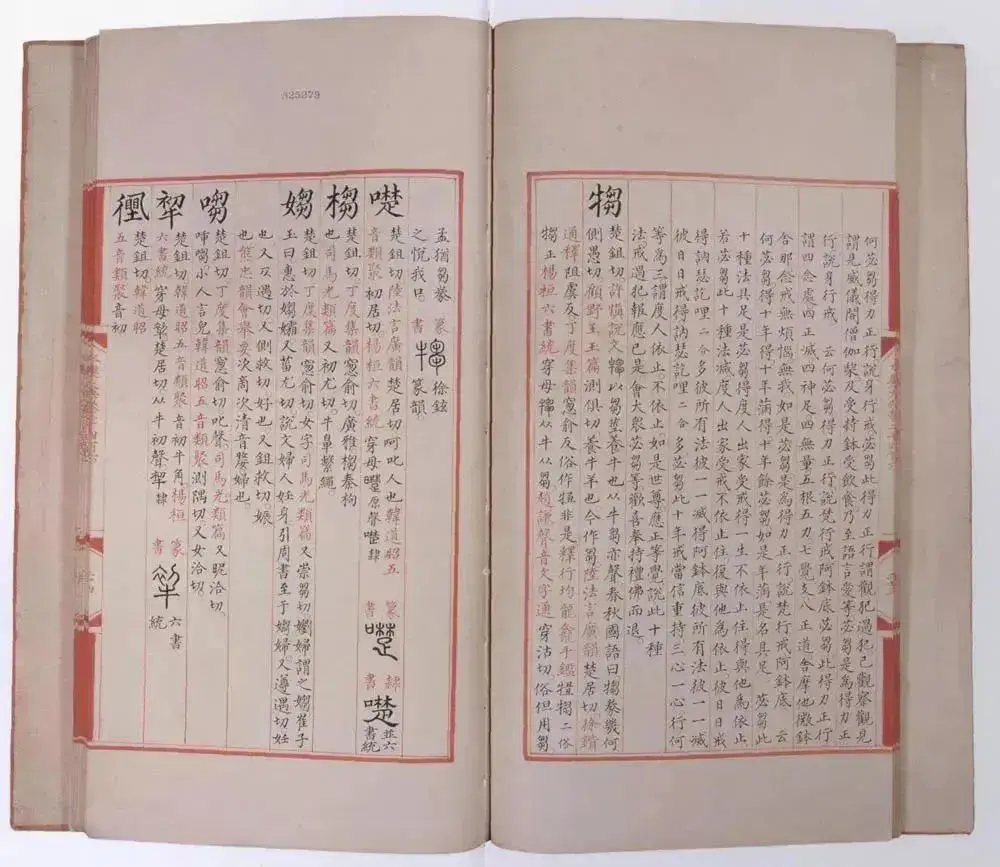 何苾芻得刀正行說身行戒苾芻此得刀正行謂觀犯過犯已觀察觀見
謂是威儀閒僧伽柴及受持鉢受飲食乃至語言受等苾芻是為得刀正
行說身行戒 云何苾芻得刀正行說梵行戒阿鉢底苾芻此得刀正行
謂四念處四正滅四神足四無量五根五力七覺支八正道舍摩他毗鉢
舍那念戒無煩惱無我如是苾芻是為得刀正行說梵行戒阿鉢底 云
何苾芻得十年得十年蒲得十年餘苾芻如是年蒲是名具足 苾芻此
十種法具足是苾芻得度人出家受戒得一生不依止住得與他為依止
若苾芻此十種法減度人出家受戒不依止住復與他為依止彼日日戒
得訥瑟訖哩二合多彼所有法彼一一減得阿鉢底彼所有法彼一一減
彼日日戒得訥瑟訖哩二合多苾芻此十年戒當信重持三心一心行何
等為三謂度人依止不依止如是世尊應正等覺說此十種
法戒過犯報應已是會大眾苾芻等歡喜奉持禮佛而退
犓
楚鉏切許慎說文犓以芻莖養牛也从牛芻亦聲春秋國語曰犓豢幾何
側愚切顧野王玉篇測俱切養牛羊也今作芻陸法言廣韻楚居切徐鍇
通釋阻虞反丁度集韻窻俞反俗作非是釋行均龍龕手鑑犓二俗
犓正楊桓六書統穿母犓从牛从芻趙謙聲音文字通穿沽切俗但用芻
325279
孟猶芻豢 篆書 徐鉉
之悅我口 篆韻
㗵
楚鉏切陸法言廣韻楚居切呵叱人也韓道昭五
音類聚初居切楊桓六書統穿母原聲㗵隸 篆書 隸書 㗵 並六書統
㮀
楚鉏切丁度集韻窻俞切廣雅㮀秦枸
也司馬光類篇又初尤切牛鼻繫繩
媰
楚鉏切丁度集韻窻俞切女字司馬光類篇又崇芻切孎婦謂之媰崔子
玉曰惠於媰孀又菑尤切說文婦人妊身引周書至于媰婦又遵遇切妊
也又仄遇切又側救切好也又鉏救切娠
也熊忠韻會舉要次商次清音嫠婦也
㗙
楚鉏切丁度集韻窻俞切叱聲司馬光類篇又眤洽切
小人言皃韓道昭五音類聚測隅切又女洽切
犂
楚鉏切韓道昭五音類聚音初牛角楊桓 篆書
六書統穿母楚居切从牛初聲 隸 六書統
楚鉏切韓道昭
五音類聚音初